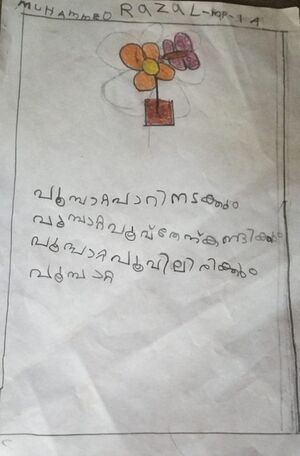 MUHAMMED RAZAL-MP-1 A
പൂമ്പാറ്റ പാറി നടക്കും
പൂമ്പാറ്റ പൂവ് തേൻ കുടിക്കും
പൂമ്പാറ്റ പൂവിലിരിക്കും
പൂമ്പാറ്റ